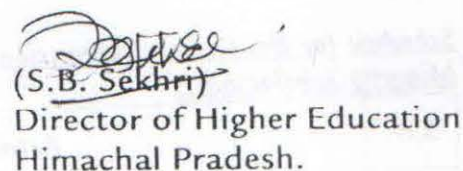 (S.B. Sekhri)
Director of Higher Education
Himachal Pradesh.